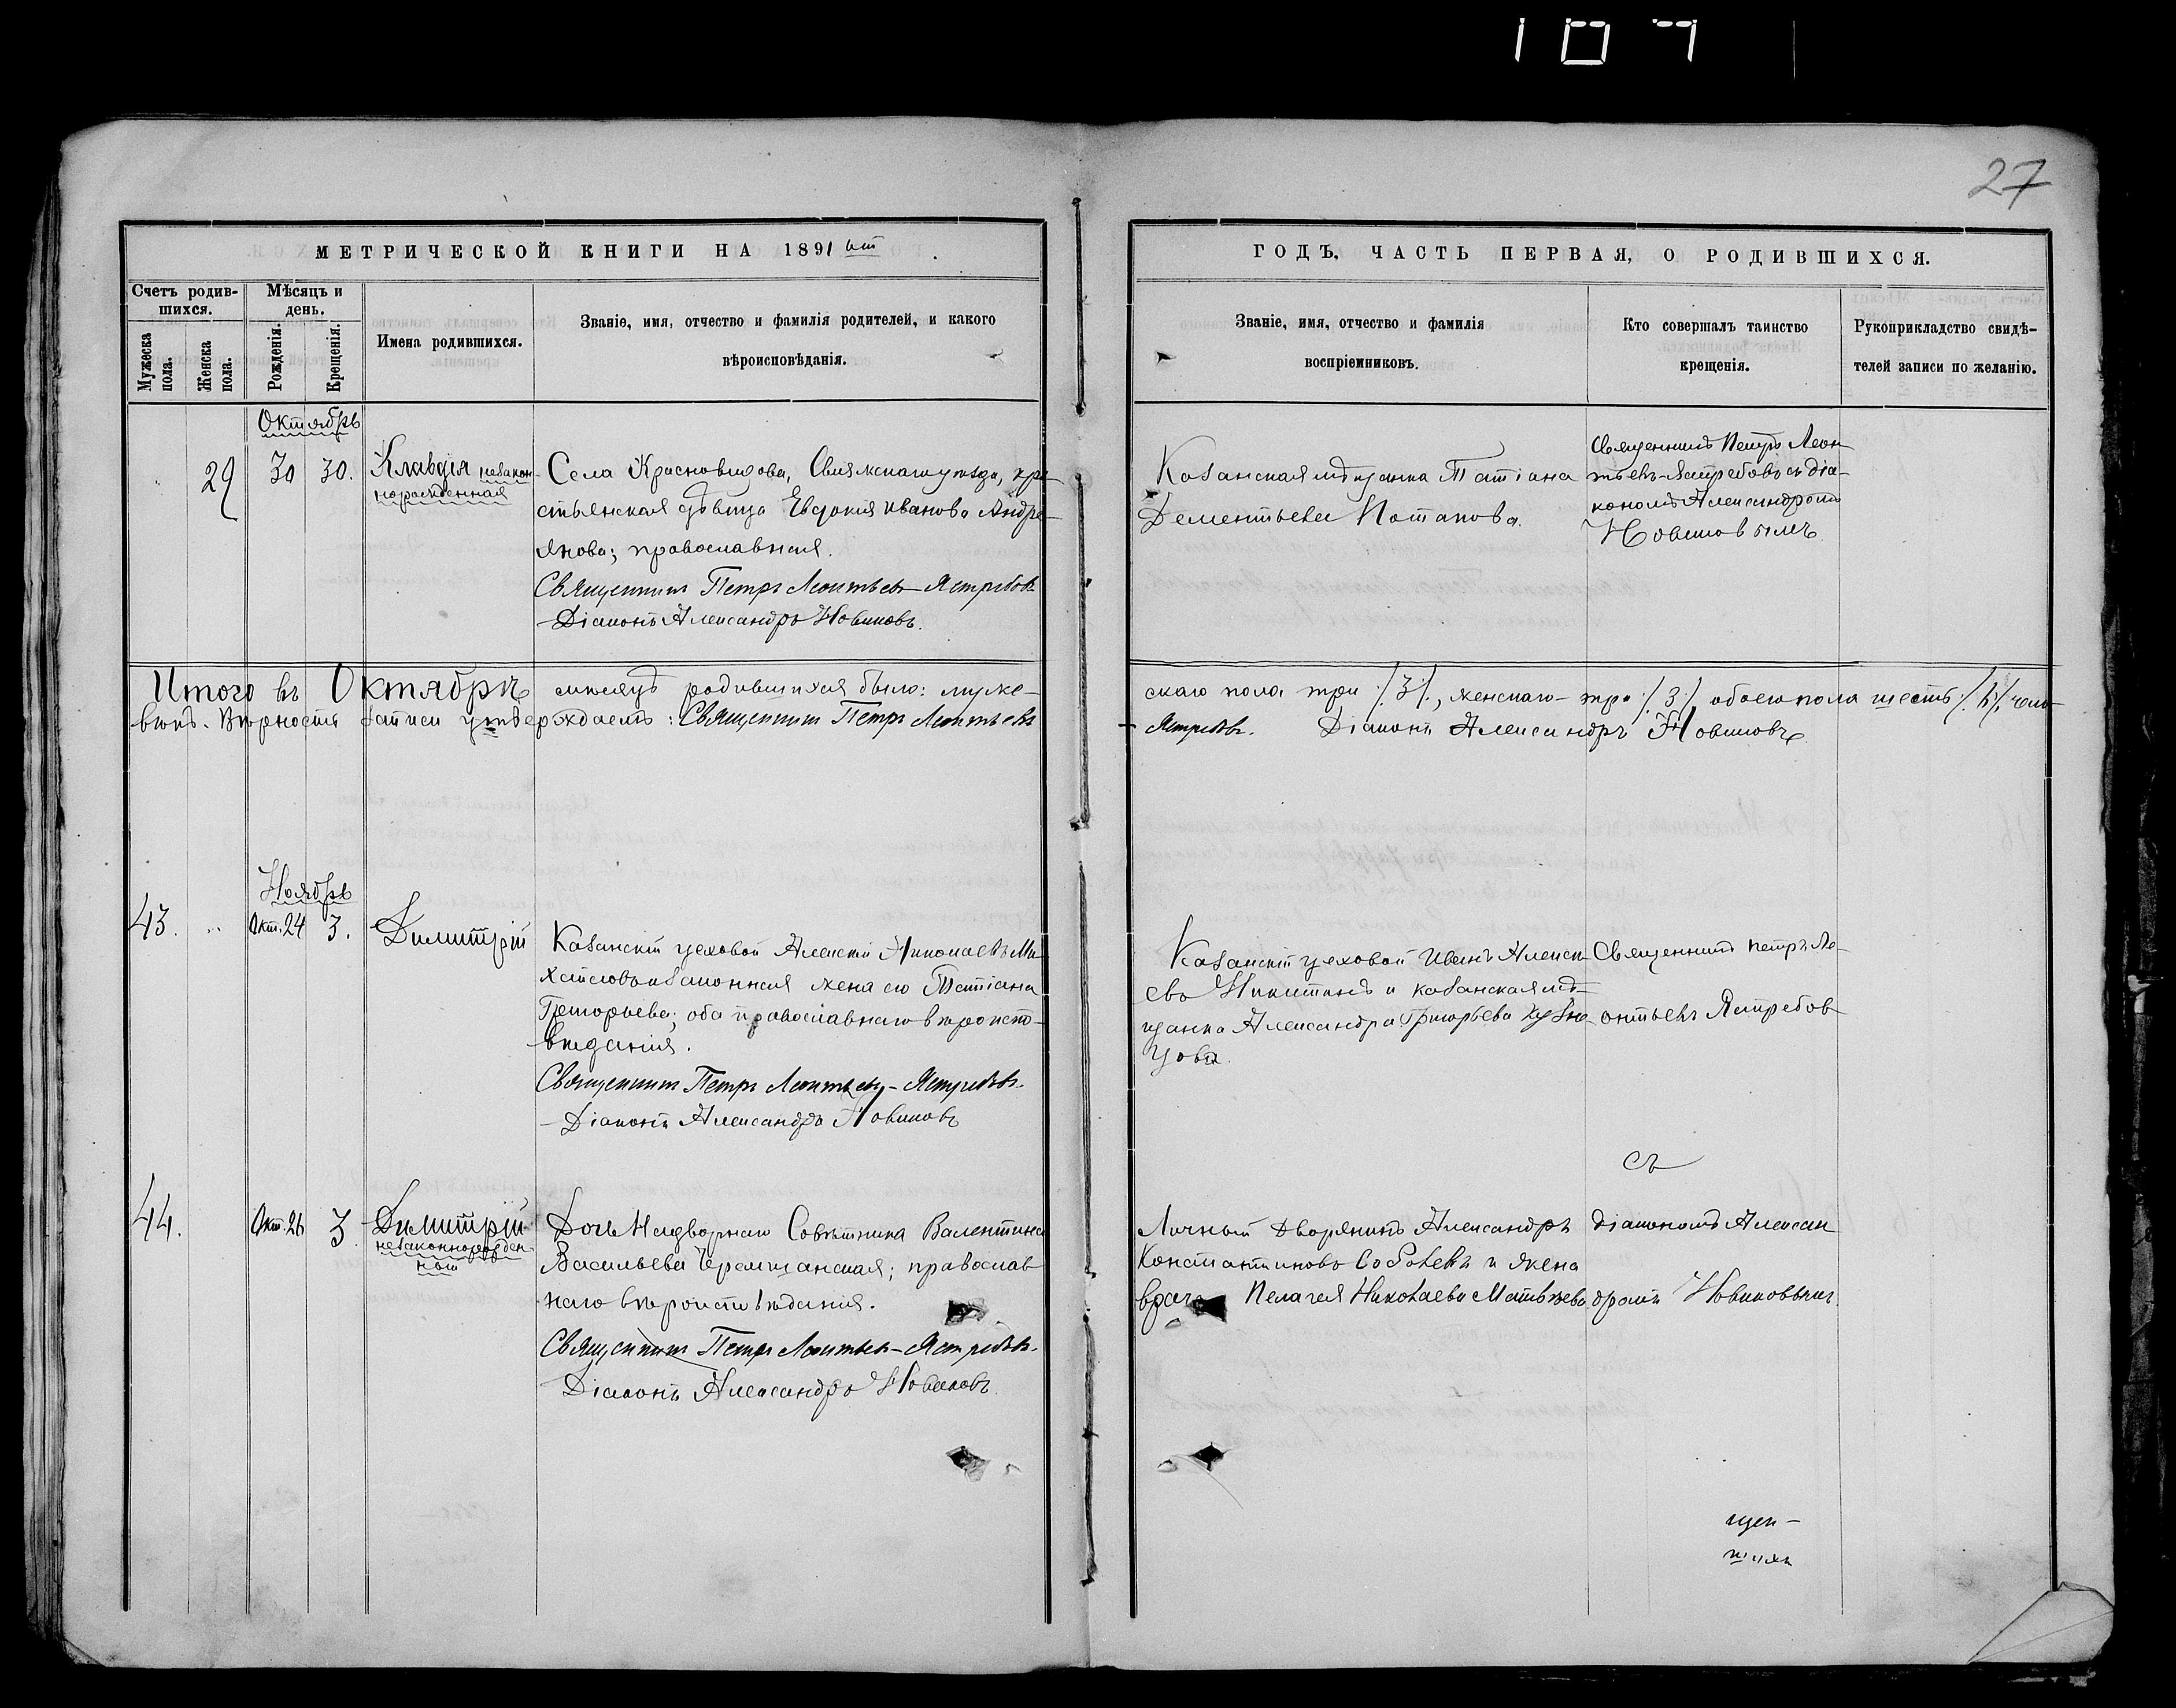 107
27
МЕТРИЧЕСКОЙ КНИГИ НА 1891 ый
ГОДЪ, ЧАСТЬ ПЕРВАЯ, О РОДИВШИХСЯ.
Счетъ родив-
шихся.
Мужеска
пола.
Женска
пола.
Мѣсяцъ и
день.
Рожденія.
Крещенія.
Имена родившихся.
Званіе, имя, отчество и фамилія родителей, и какого
вѣроисповѣданія.
Званіе, имя, отчество и фамилія
воспріемниковъ.
Кто совершалъ таинство
крещенія.
Рукоприкладство свидѣ-
телей записи по желанію.
Октябрь
29 30 30. Клавдія незакон-
норожденная
Села Красновидова, Свіяжскаго уѣзда, кре-
стьянская дѣвица Евдокія Иванова Андре-
янова; православная.
Священникъ Петръ Леонтьевъ-Ястребовъ
Діаконъ Александръ Новиковъ.
Казанская мѣщанка Татіана
Дементьева Потапова.
Священникъ Петръ Леон-
тьевъ-Ястребовъ съ діа-
кономъ Александромъ
Новиковымъ
Итого въ Октябрѣ мѣсяцѣ родившихся было: муже-
скаго пола три /:3:/, женскаго - три /:3:/, обоего пола шесть /:6:/ чело-
вѣкъ. Вѣрность записи утверждаемъ: Священникъ Петръ Леонтьевъ
Ястребовъ. Діаконъ Александръ Новиковъ
Ноябрь
43. " Окт. 24 3. Димитрій
Казанскій цеховой Алексій Николаевъ Ми-
хайловъ и законная жена его Татіана
Григорьева; оба православнаго вѣроиспо-
вѣданія.
Священникъ Петръ Леонтьевъ-Ястребовъ.
Діаконъ Александръ Новиковъ
Казанскій цеховой Иванъ Алексѣ-
евъ Никитинъ и казанская мѣ-
щанка Александра Григорьева Кузне-
цова.
Священникъ Петръ Ле-
онтьевъ Ястребов
съ
44. Окт. 26 3 Димитрій
незаконнорожден-
ный
Дочь Надворнаго Совѣтника Валентина
Васильева Черемшанская; православ-
наго вѣроисповѣданія.
Священникъ Петръ Леонтьевъ-Ястребовъ.
Діаконъ Александръ Новиковъ.
Личный дворянинъ Александръ
Константиновъ Соболевъ и жена
врача Пелагея Николаева Матвѣева
діакономъ Алексан
дромъ Новиковымъ.
щен-